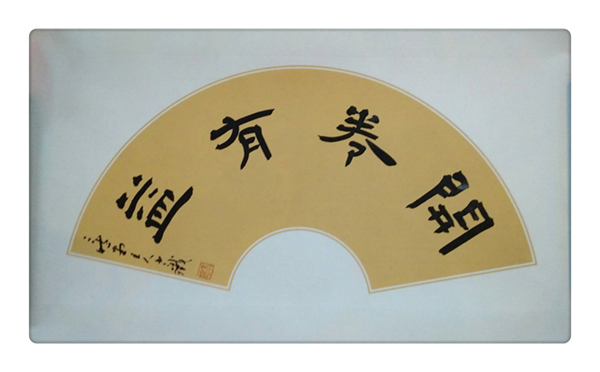 開卷有益